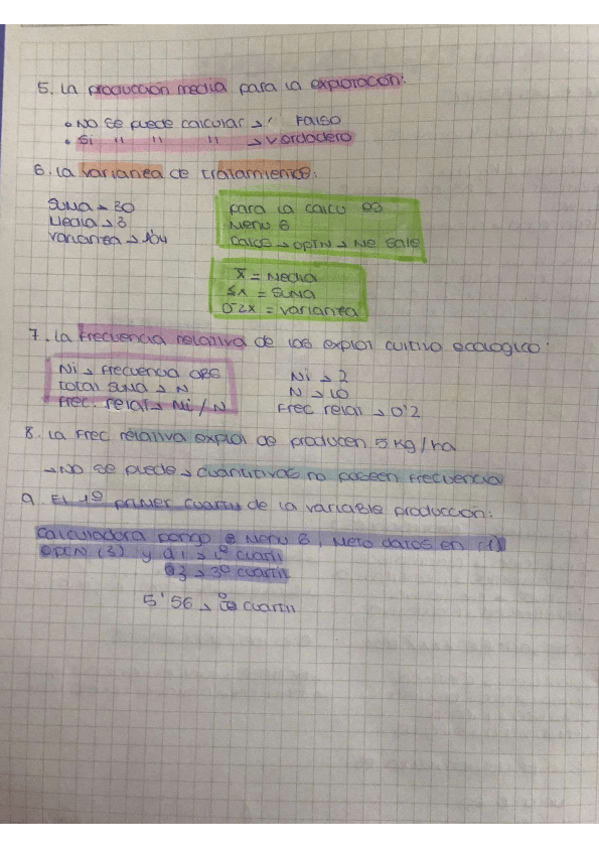 5. La producción media para la explotación:
• No se puede calcular → Falso
• Si " " " → Verdadero
6. La varianea de tratamiento:
Suma → 30
Media → 3
Varianea → 1'04
para la calcu
Menu 6
Datos → OPTN → Me sale
x̄ = Media
Σx = Suma
σ2x = varianea
7. La frecuencia relativa de las explot cultivo ecologico:
Ni → frecuencia OBS
total suma → N
Frec. relat → Ni / N
Ni → 2
N → 10
Frec relat → 0'2
8. La frec relativa explot de producen 5 kg / ha
→ No se puede → cuantitivas no poseen frecuencia
9. El 1º primer cuartil de la variable produccion:
Calculadora pongo Menu 6, Meto datos en (1)
OPTN (3) y Q1 → 1º cuartil
Q3 → 3º cuartil
5'56 → cuartil